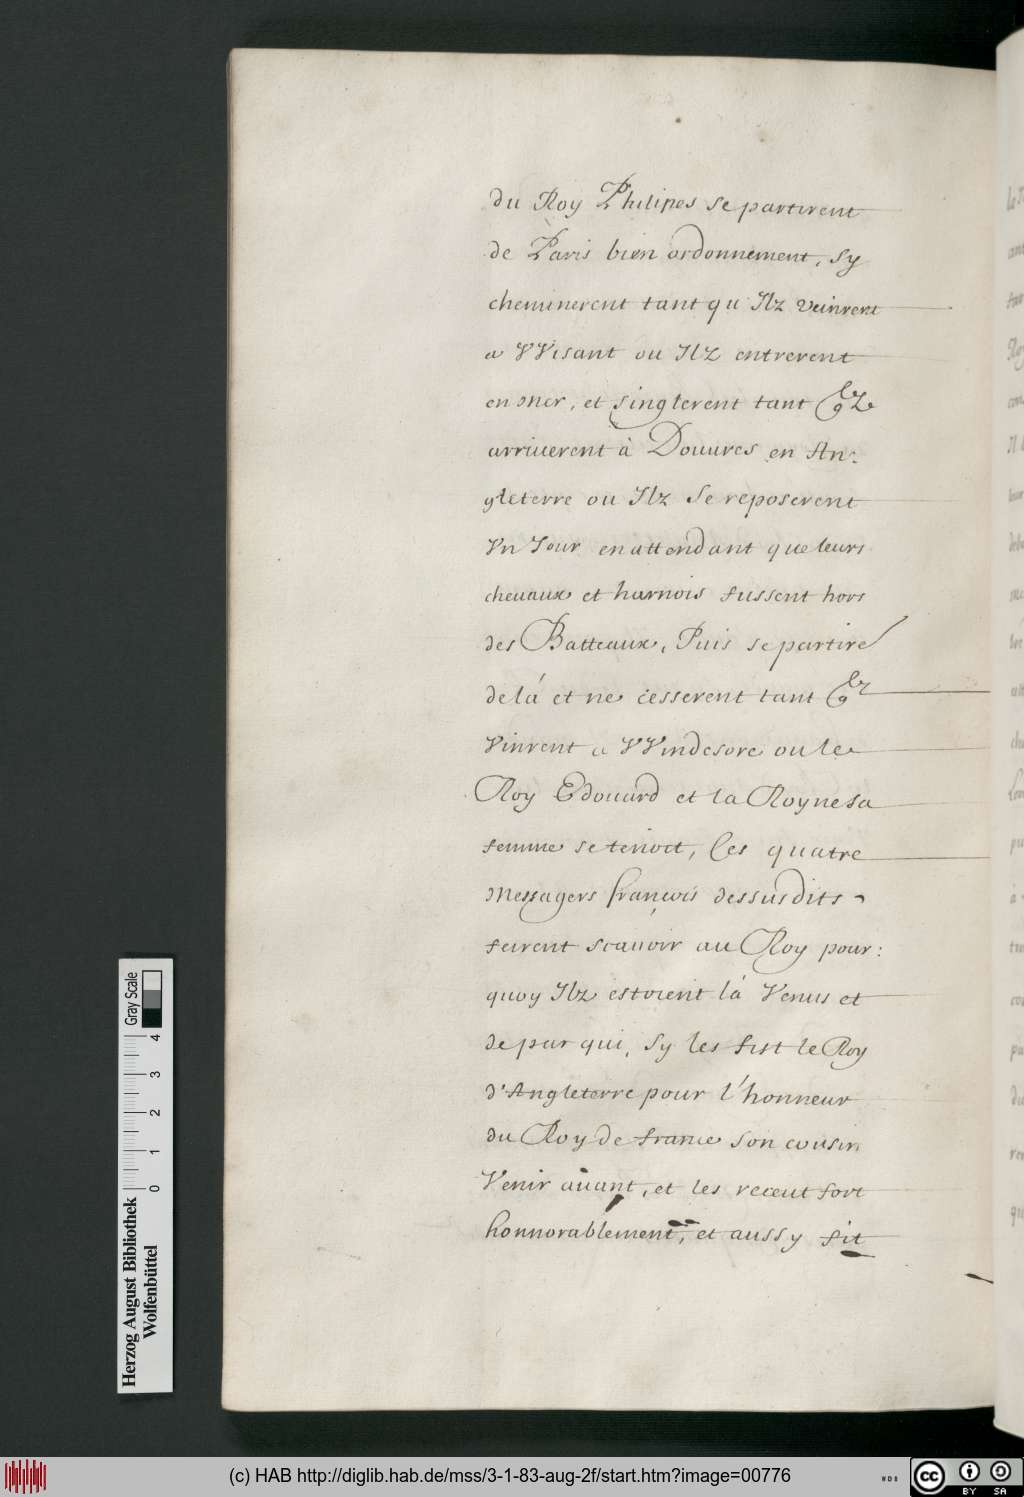 du Roy Philipes se partirent
de Paris bien ordonnement, sy
cheminerent tant qu Ilz veinrent
a VVisant ou Ilz entrerent
en mer, et singlerent tant
arriuerent à Douures en An:
gleterre ou Ilz se reposerent
Vn Jour en attendant que leurs
cheuaux et harnois fussent hors
des Batteaux, Puis se partire
de lá et ne cesserent tant
Vinrent a VVindesore ou le
Roy Edouard et la Royne sa
femme se tenoit, Ces quatre
Messagers françois dessusdits
feirent scauoir au Roy pour:
quoy Ilz estoient lá Venus et
de par qui, sy les fist le Roy
d'Angleterre pour l'honneur
du Roy de france son cousin
Venir auant, et les receut fort
honnorablement, et aussy fit
Herzog August Bibliothek
Wolfenbüttel
0 1 2 3 4
Gray Scale
(c) HAB http://diglib.hab.de/mss/3-1-83-aug-2f/start.htm?image=00776
WDB
cc BY SA